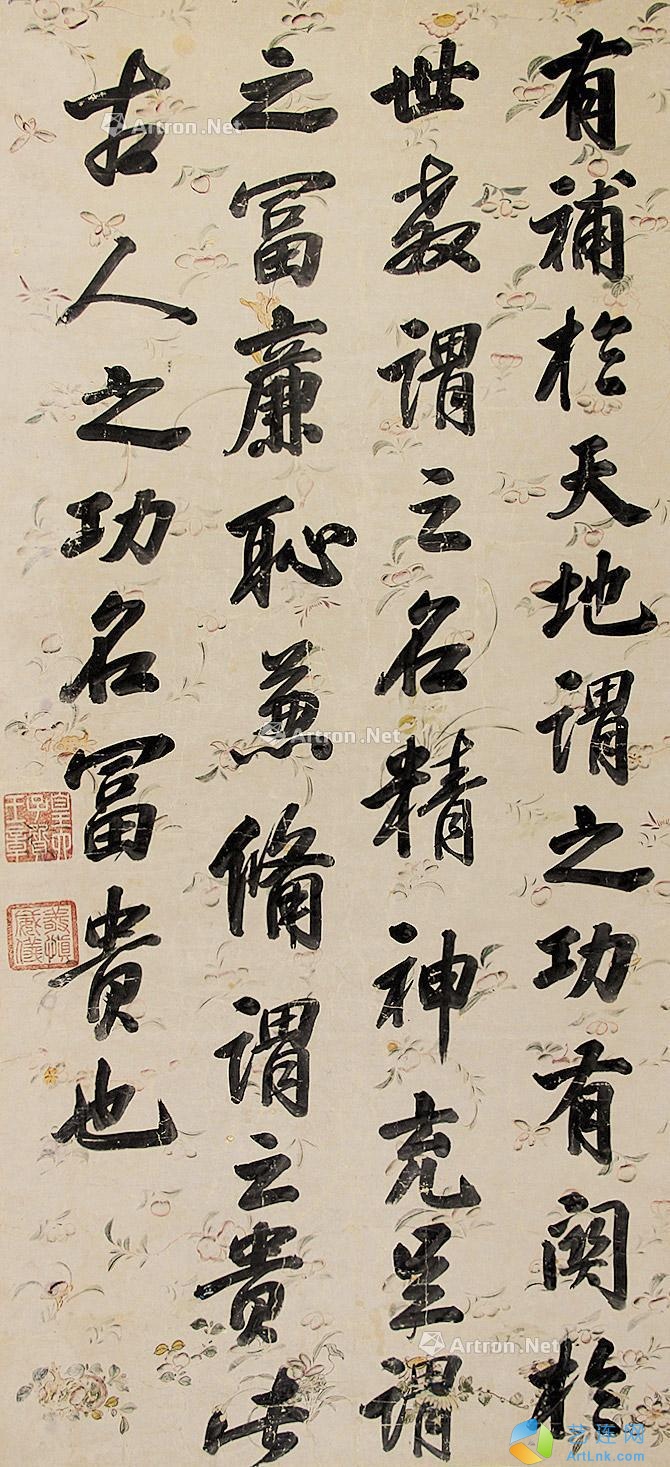 有補於天地謂之功有関於
世教謂之名精神充足謂
之冨廉恥兼備謂之貴此
古人之功名冨貴也
Artron.Net
Artron.Net
Artron.Net
Artron.Net
艺连网
ArtLnk.com